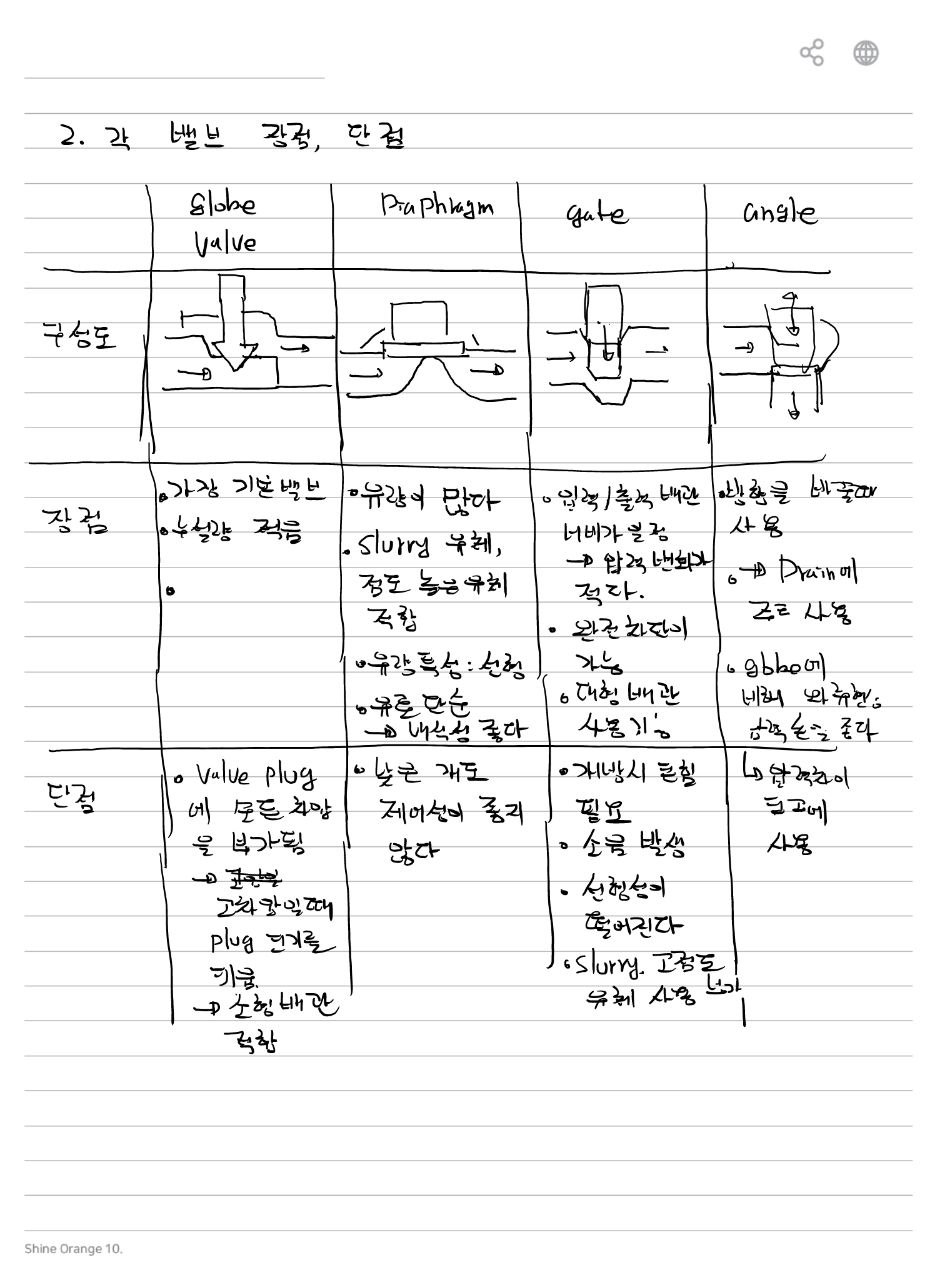 2. 각 밸브 장점, 단점
Globe Valve
Diaphragm
gate
angle
구성도
장점
• 가장 기본밸브
• 누설량 적음
•
• 유량이 많다
• Slurry 유체,
점도 높은 유체
적합
• 유량특성 : 선형
• 유로 단순
→ 내식성 좋다
• 입력/출력 배관
너비가 불정
→ 압력 변화가
적다.
• 완전차단이
가능
• 대형 배관
사용가능
• 방향을 바꿀때
사용
• → Drain에
주로 사용
• globe에
비해
압력손실 좋다
단점
• Valve plug
에 모든 차압
을 부가됨
→
고차압일때
plug 단기를
키움.
→ 소형배관
적합
• 낮은 개도
제어성이 좋지
않다
• 개방시 큰힘
필요
• 소음 발생
• 선형성이
떨어진다
• Slurry. 고점도
유체 사용 불가
↳ 압력차이
큰곳에
사용
Shine Orange 10.